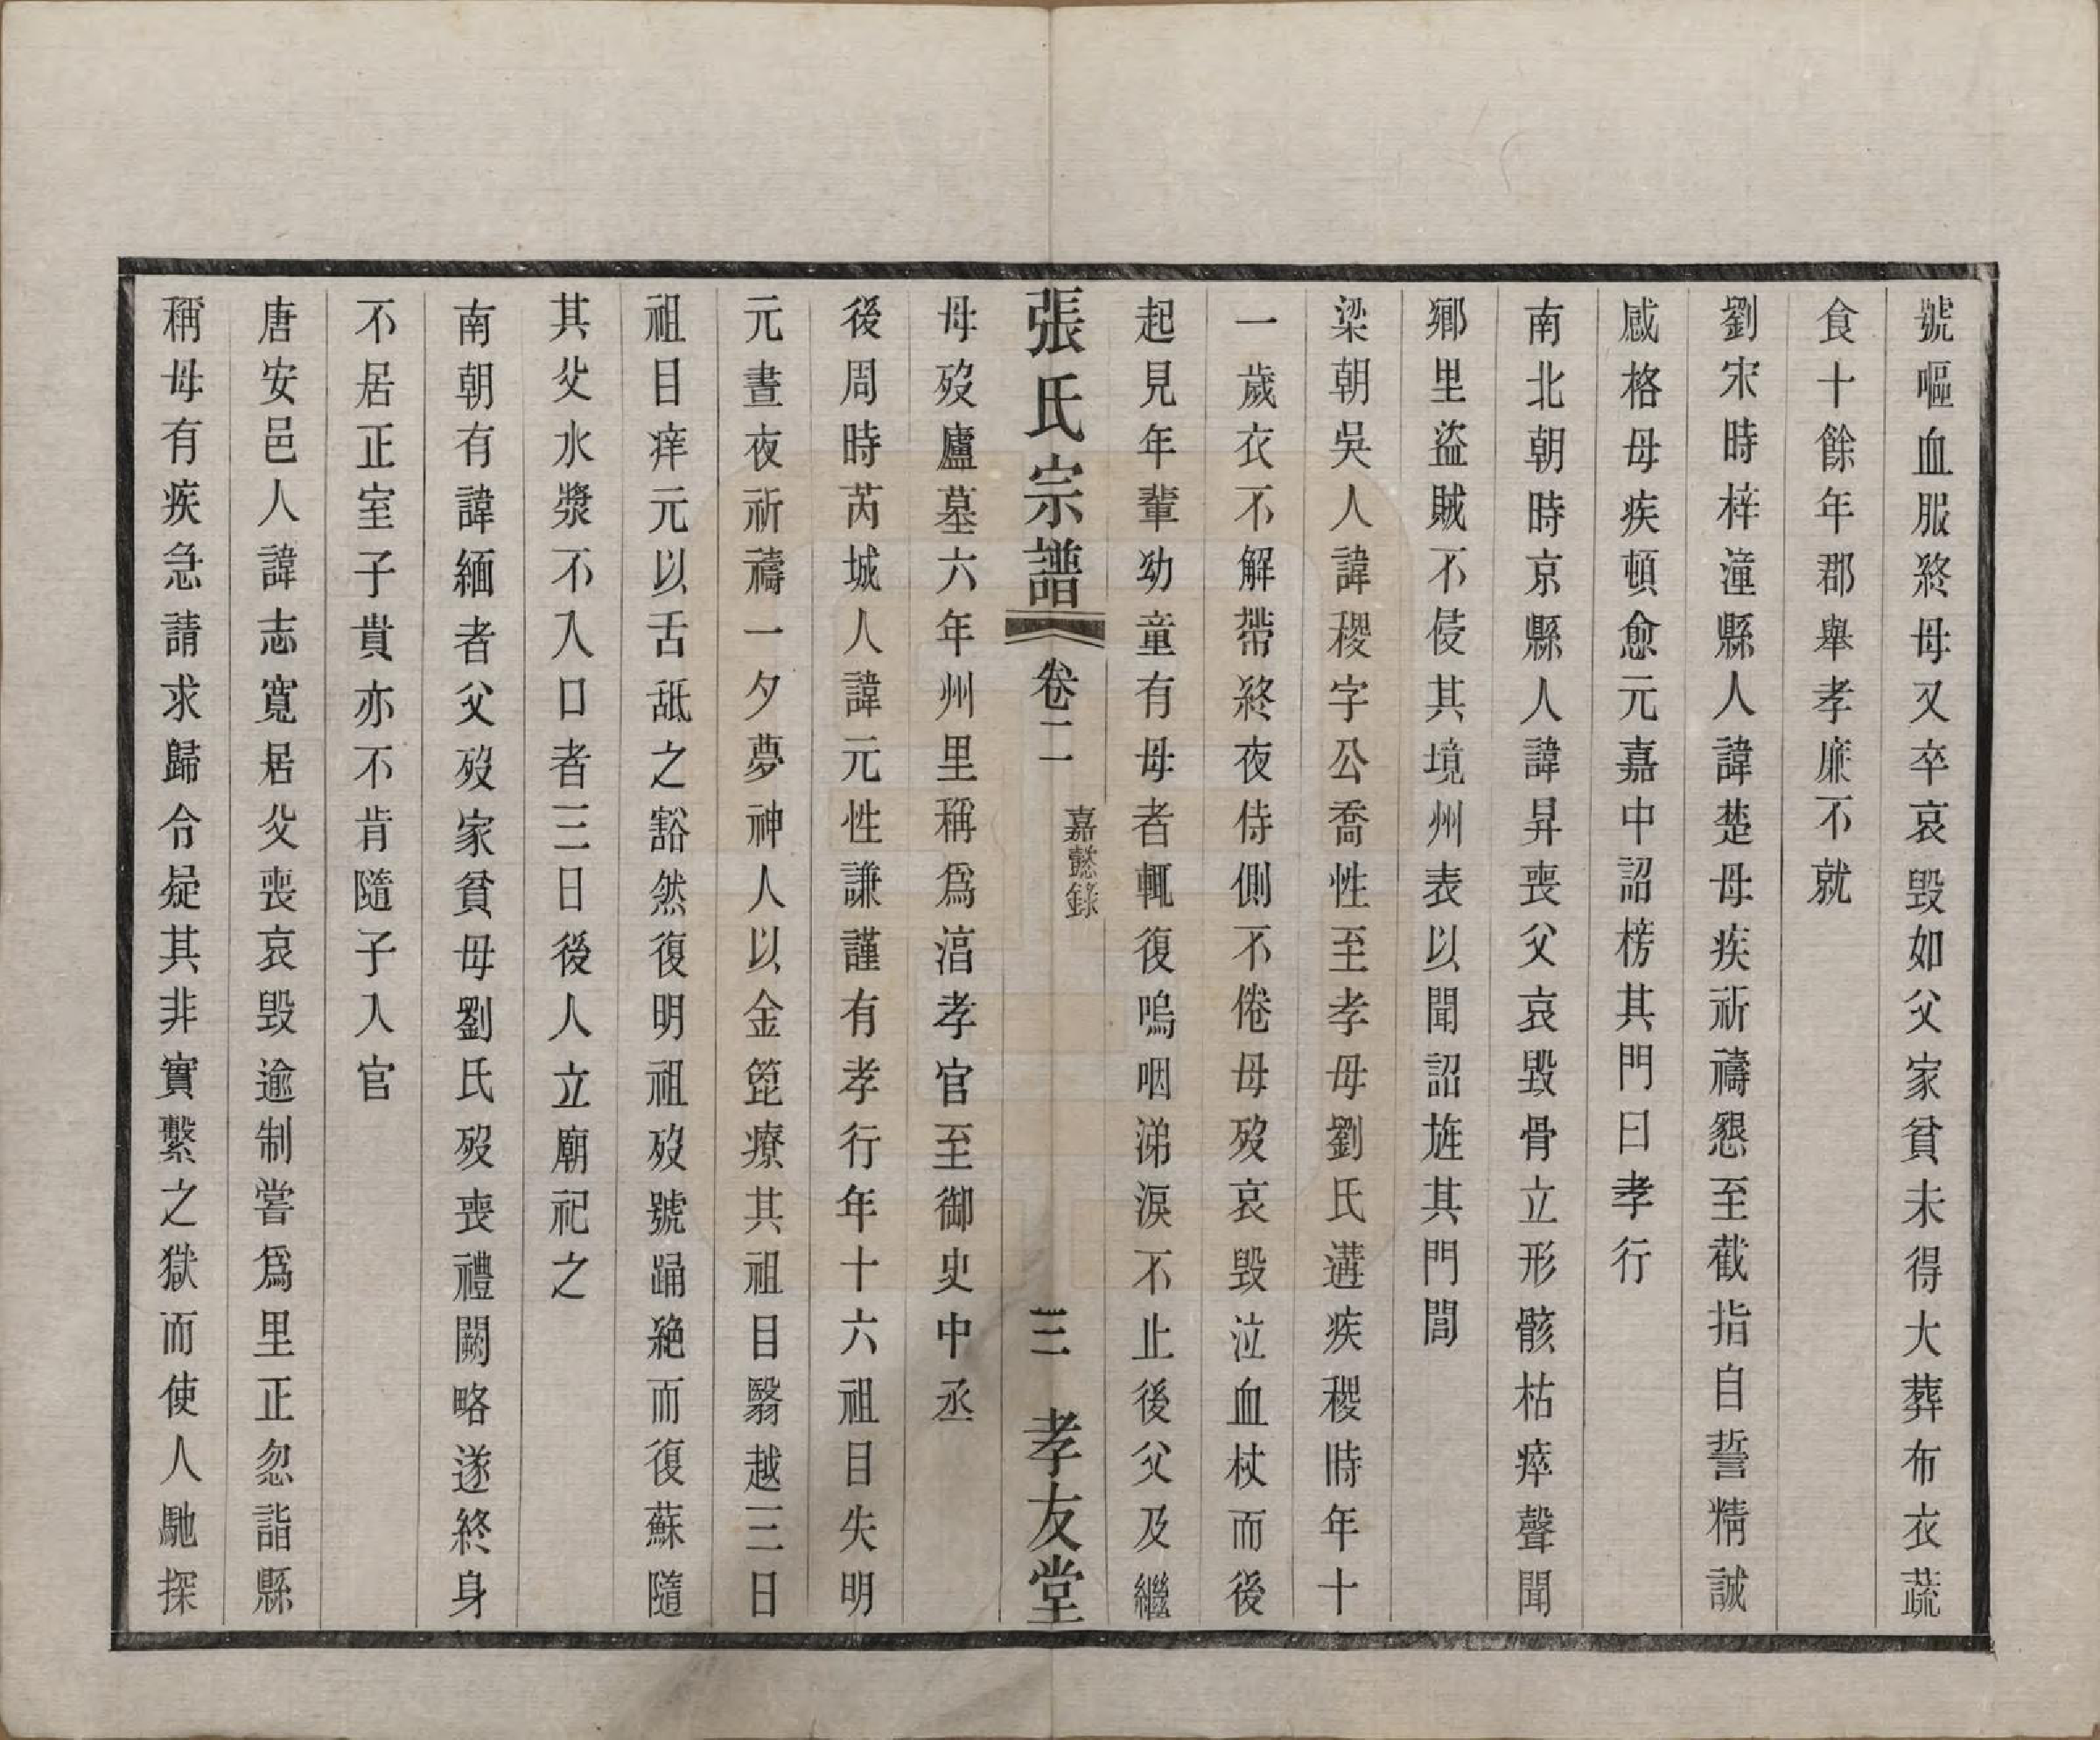 號嘔血服終母又卒哀毀如父家貧未得大葬布衣蔬
食十餘年郡舉孝廉不就
劉宋時梓潼縣人諱楚母疾祈禱懇至截指自誓精誠
感格母疾頓愈元嘉中詔榜其門曰孝行
南北朝時京縣人諱昇喪父哀毀骨立形骸枯瘁聲聞
鄉里盜賊不侵其境州表以聞詔旌其門閭
梁朝吳人諱稷字公喬性至孝母劉氏遘疾稷時年十
一歲衣不解帶終夜侍側不倦母歿哀毀泣血杖而後
起見年輩幼童有母者輒復嗚咽涕淚不止後父及繼
張氏宗譜 卷二 嘉懿錄 三 孝友堂
母歿廬墓六年州里稱爲湻孝官至御史中丞
後周時芮城人諱元性謙謹有孝行年十六祖目失明
元晝夜祈禱一夕夢神人以金篦療其祖目翳越三日
祖目痒元以舌舐之豁然復明祖歿號踊絶而復蘇隨
其父水漿不入口者三日後人立廟祀之
南朝有諱緬者父歿家貧母劉氏歿喪禮闕略遂終身
不居正室子貴亦不肯隨子入官
唐安邑人諱志寬居父喪哀毀逾制嘗爲里正忽詣縣
稱母有疾急請求歸令疑其非實繫之獄而使人馳探